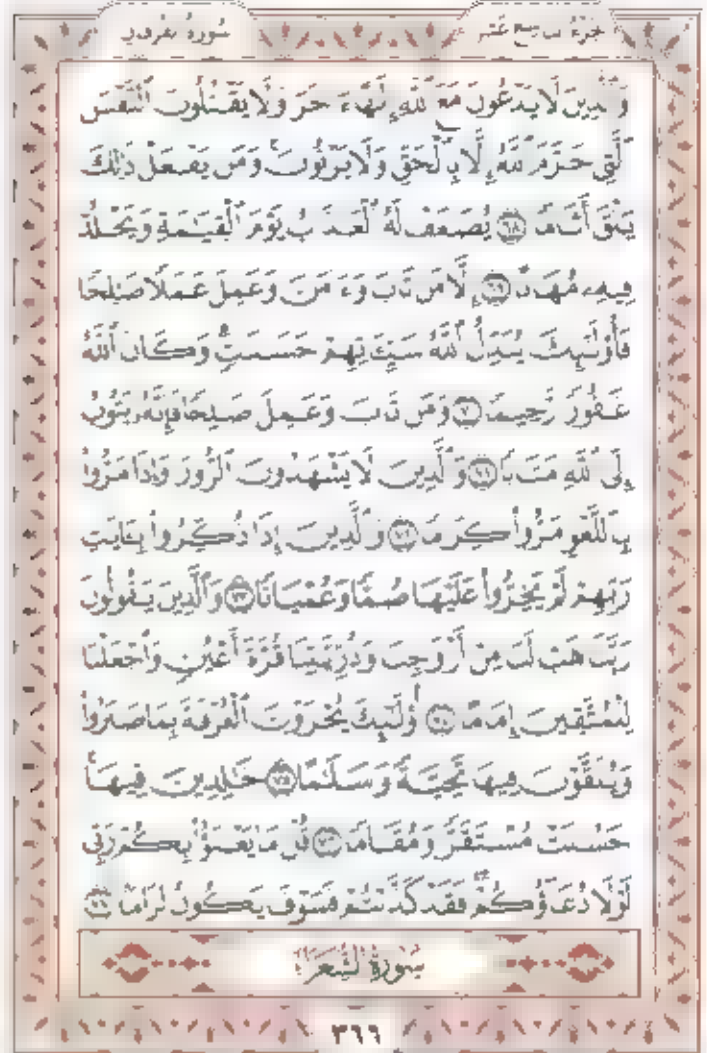 سُورَةُ الفُرْقَانِ الجُزْءُ التَّاسِعَ عَشَرَ
وَٱلَّذِينَ لَا يَدۡعُونَ مَعَ ٱللَّهِ إِلَٰهًا ءَاخَرَ وَلَا يَقۡتُلُونَ ٱلنَّفۡسَ
ٱلَّتِي حَرَّمَ ٱللَّهُ إِلَّا بِٱلۡحَقِّ وَلَا يَزۡنُونَۚ وَمَن يَفۡعَلۡ ذَٰلِكَ
يَلۡقَ أَثَامٗا ٦٨ يُضَٰعَفۡ لَهُ ٱلۡعَذَابُ يَوۡمَ ٱلۡقِيَٰمَةِ وَيَخۡلُدۡ
فِيهِۦ مُهَانًا ٦٩ إِلَّا مَن تَابَ وَءَامَنَ وَعَمِلَ عَمَلٗا صَٰلِحٗا
فَأُوْلَٰٓئِكَ يُبَدِّلُ ٱللَّهُ سَيِّـَٔاتِهِمۡ حَسَنَٰتٖۗ وَكَانَ ٱللَّهُ
غَفُورٗا رَّحِيمٗا ٧٠ وَمَن تَابَ وَعَمِلَ صَٰلِحٗا فَإِنَّهُۥ يَتُوبُ
إِلَى ٱللَّهِ مَتَابٗا ٧١ وَٱلَّذِينَ لَا يَشۡهَدُونَ ٱلزُّورَ وَإِذَا مَرُّواْ
بِٱللَّغۡوِ مَرُّواْ كِرَامٗا ٧٢ وَٱلَّذِينَ إِذَا ذُكِّرُواْ بِـَٔايَٰتِ
رَبِّهِمۡ لَمۡ يَخِرُّواْ عَلَيۡهَا صُمّٗا وَعُمۡيَانٗا ٧٣ وَٱلَّذِينَ يَقُولُونَ
رَبَّنَا هَبۡ لَنَا مِنۡ أَزۡوَٰجِنَا وَذُرِّيَّٰتِنَا قُرَّةَ أَعۡيُنٖ وَٱجۡعَلۡنَا
لِلۡمُتَّقِينَ إِمَامًا ٧٤ أُوْلَٰٓئِكَ يُجۡزَوۡنَ ٱلۡغُرۡفَةَ بِمَا صَبَرُواْ
وَيُلَقَّوۡنَ فِيهَا تَحِيَّةٗ وَسَلَٰمًا ٧٥ خَٰلِدِينَ فِيهَاۚ
حَسُنَتۡ مُسۡتَقَرّٗا وَمُقَامٗا ٧٦ قُلۡ مَا يَعۡبَؤُاْ بِكُمۡ رَبِّي
لَوۡلَا دُعَآؤُكُمۡۖ فَقَدۡ كَذَّبۡتُمۡ فَسَوۡفَ يَكُونُ لِزَامَۢا ٧٧
سُورَةُ الشُّعَرَاءِ
٣٦٦